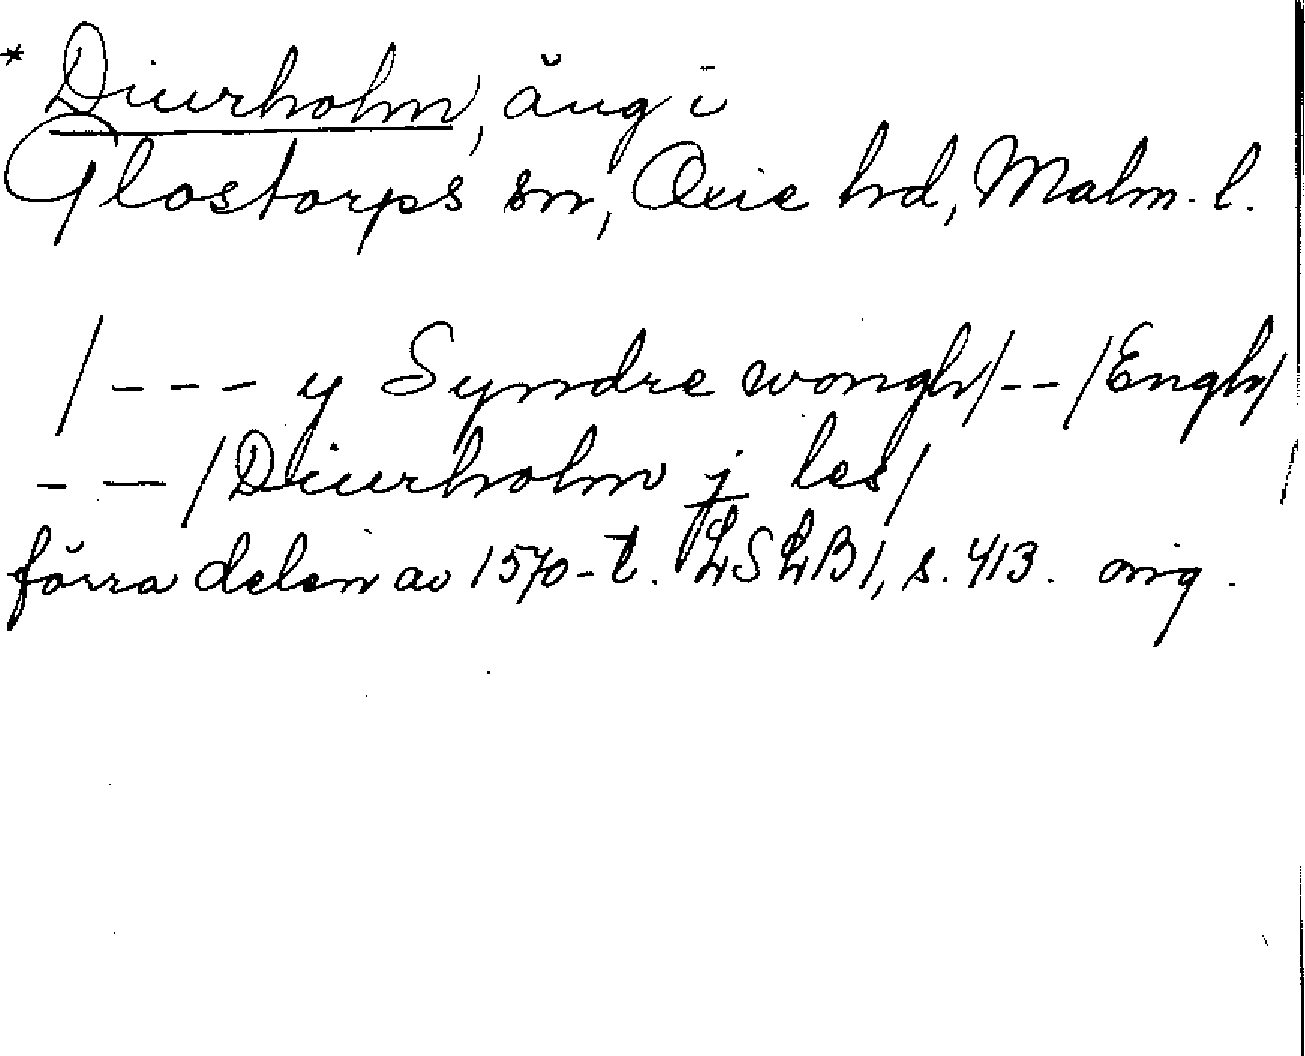 * Diurholm, äng i
Glostorps sn, Oxie hd, Malm. l.
/--- y Syndre wongh/--/Engh/
-- /Diurholm j les/
förra delen av 1570-t. LSLB1, s. 413. orig.